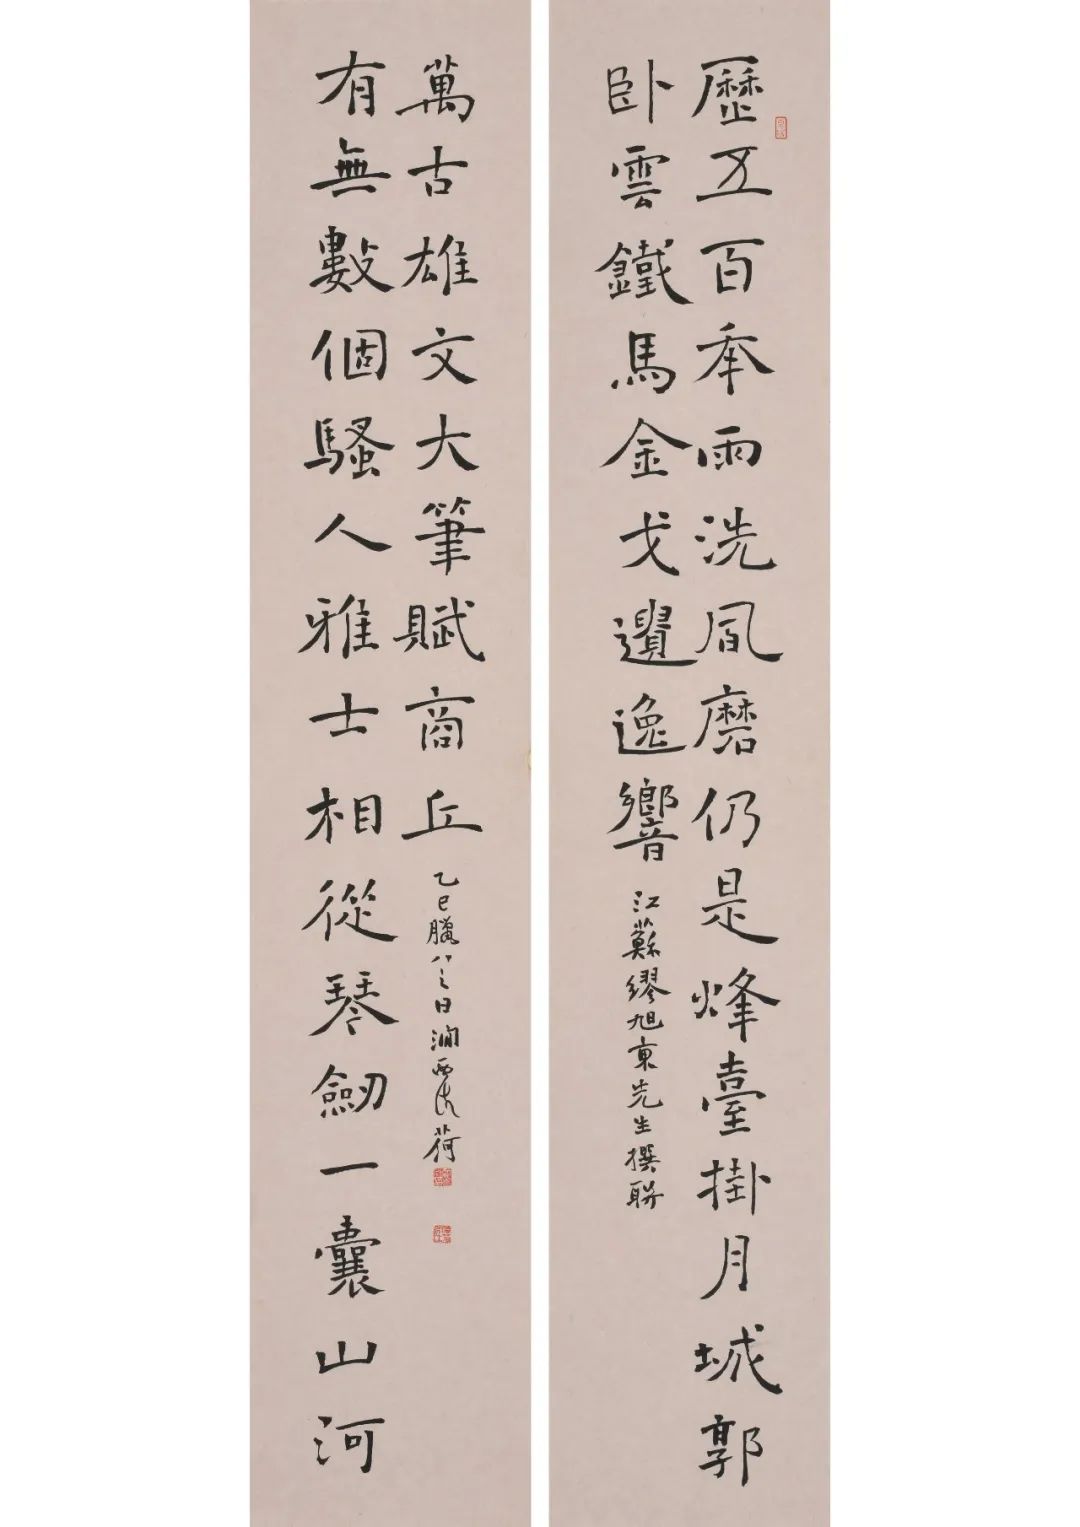 歷五百年雨洗風磨仍是烽臺掛月城郭
卧雲鐵馬金戈遺逸響
江蘇繆旭東先生撰聯
有無數個騷人雅士相從琴劒一囊山河
萬古雄文大筆賦商丘
乙巳臘八之日澗西荷